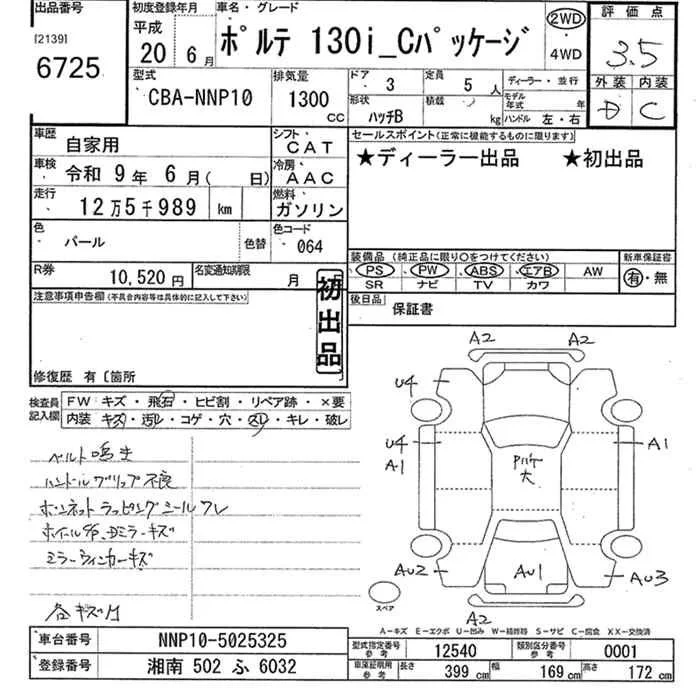 出品番号
[2139]
6725
初度登録年月
平成
20 6月
車名・グレード
ポルテ 130i_Cパッケージ
2WD
4WD
評価点
3.5
外装 内装
D C
型式
CBA-NNP10
排気量
1300
CC
ドア
3
定員
5 人
形状
ハッチB
積載
kg
ディーラー・並行
モデル年式 年
ハンドル 左・右
車歴
自家用
シフト
CAT
車検
令和 9年 6月( 日)
冷房
AAC
走行
12万5千989 km
燃料
ガソリン
色
パール
色替
色コード
064
R券
10,520円
名変通知期限
月
セールスポイント(正常に機能するものに限ります)
★ディーラー出品 ★初出品
装備品(純正品に限り○をつけてください)
PS PW ABS エアB AW
SR ナビ TV カワ
新車保証書
有・無
後日品
保証書
注意事項申告欄(不具合内容等は具体的に記入して下さい)
初出品
修復歴 有〔箇所
検査員記入欄
FW キズ・飛石・ヒビ割・リペア跡・×要
内装 キズ・汚レ・コゲ・穴・スレ・キレ・破レ
ベルト鳴き
ハンドルグリップ不良
ボンネットラッピングシールワレ
ミラーウィンカーキズ
各キズ凹
A2 A2
U4
U4
A1
A1
Pルーフ
大
AU2
AU1
AU3
A2
スペア
A-キズ E-エクボ U-凹み W-補修跡 S-サビ C-腐食 XX-交換済
車台番号
NNP10-5025325
登録番号
湘南 502 ふ 6032
型式指定番号
参考
12540
類別区分番号
参考
0001
車庫証明用
参考
長さ
399 cm
幅
169 cm
高さ
172 cm